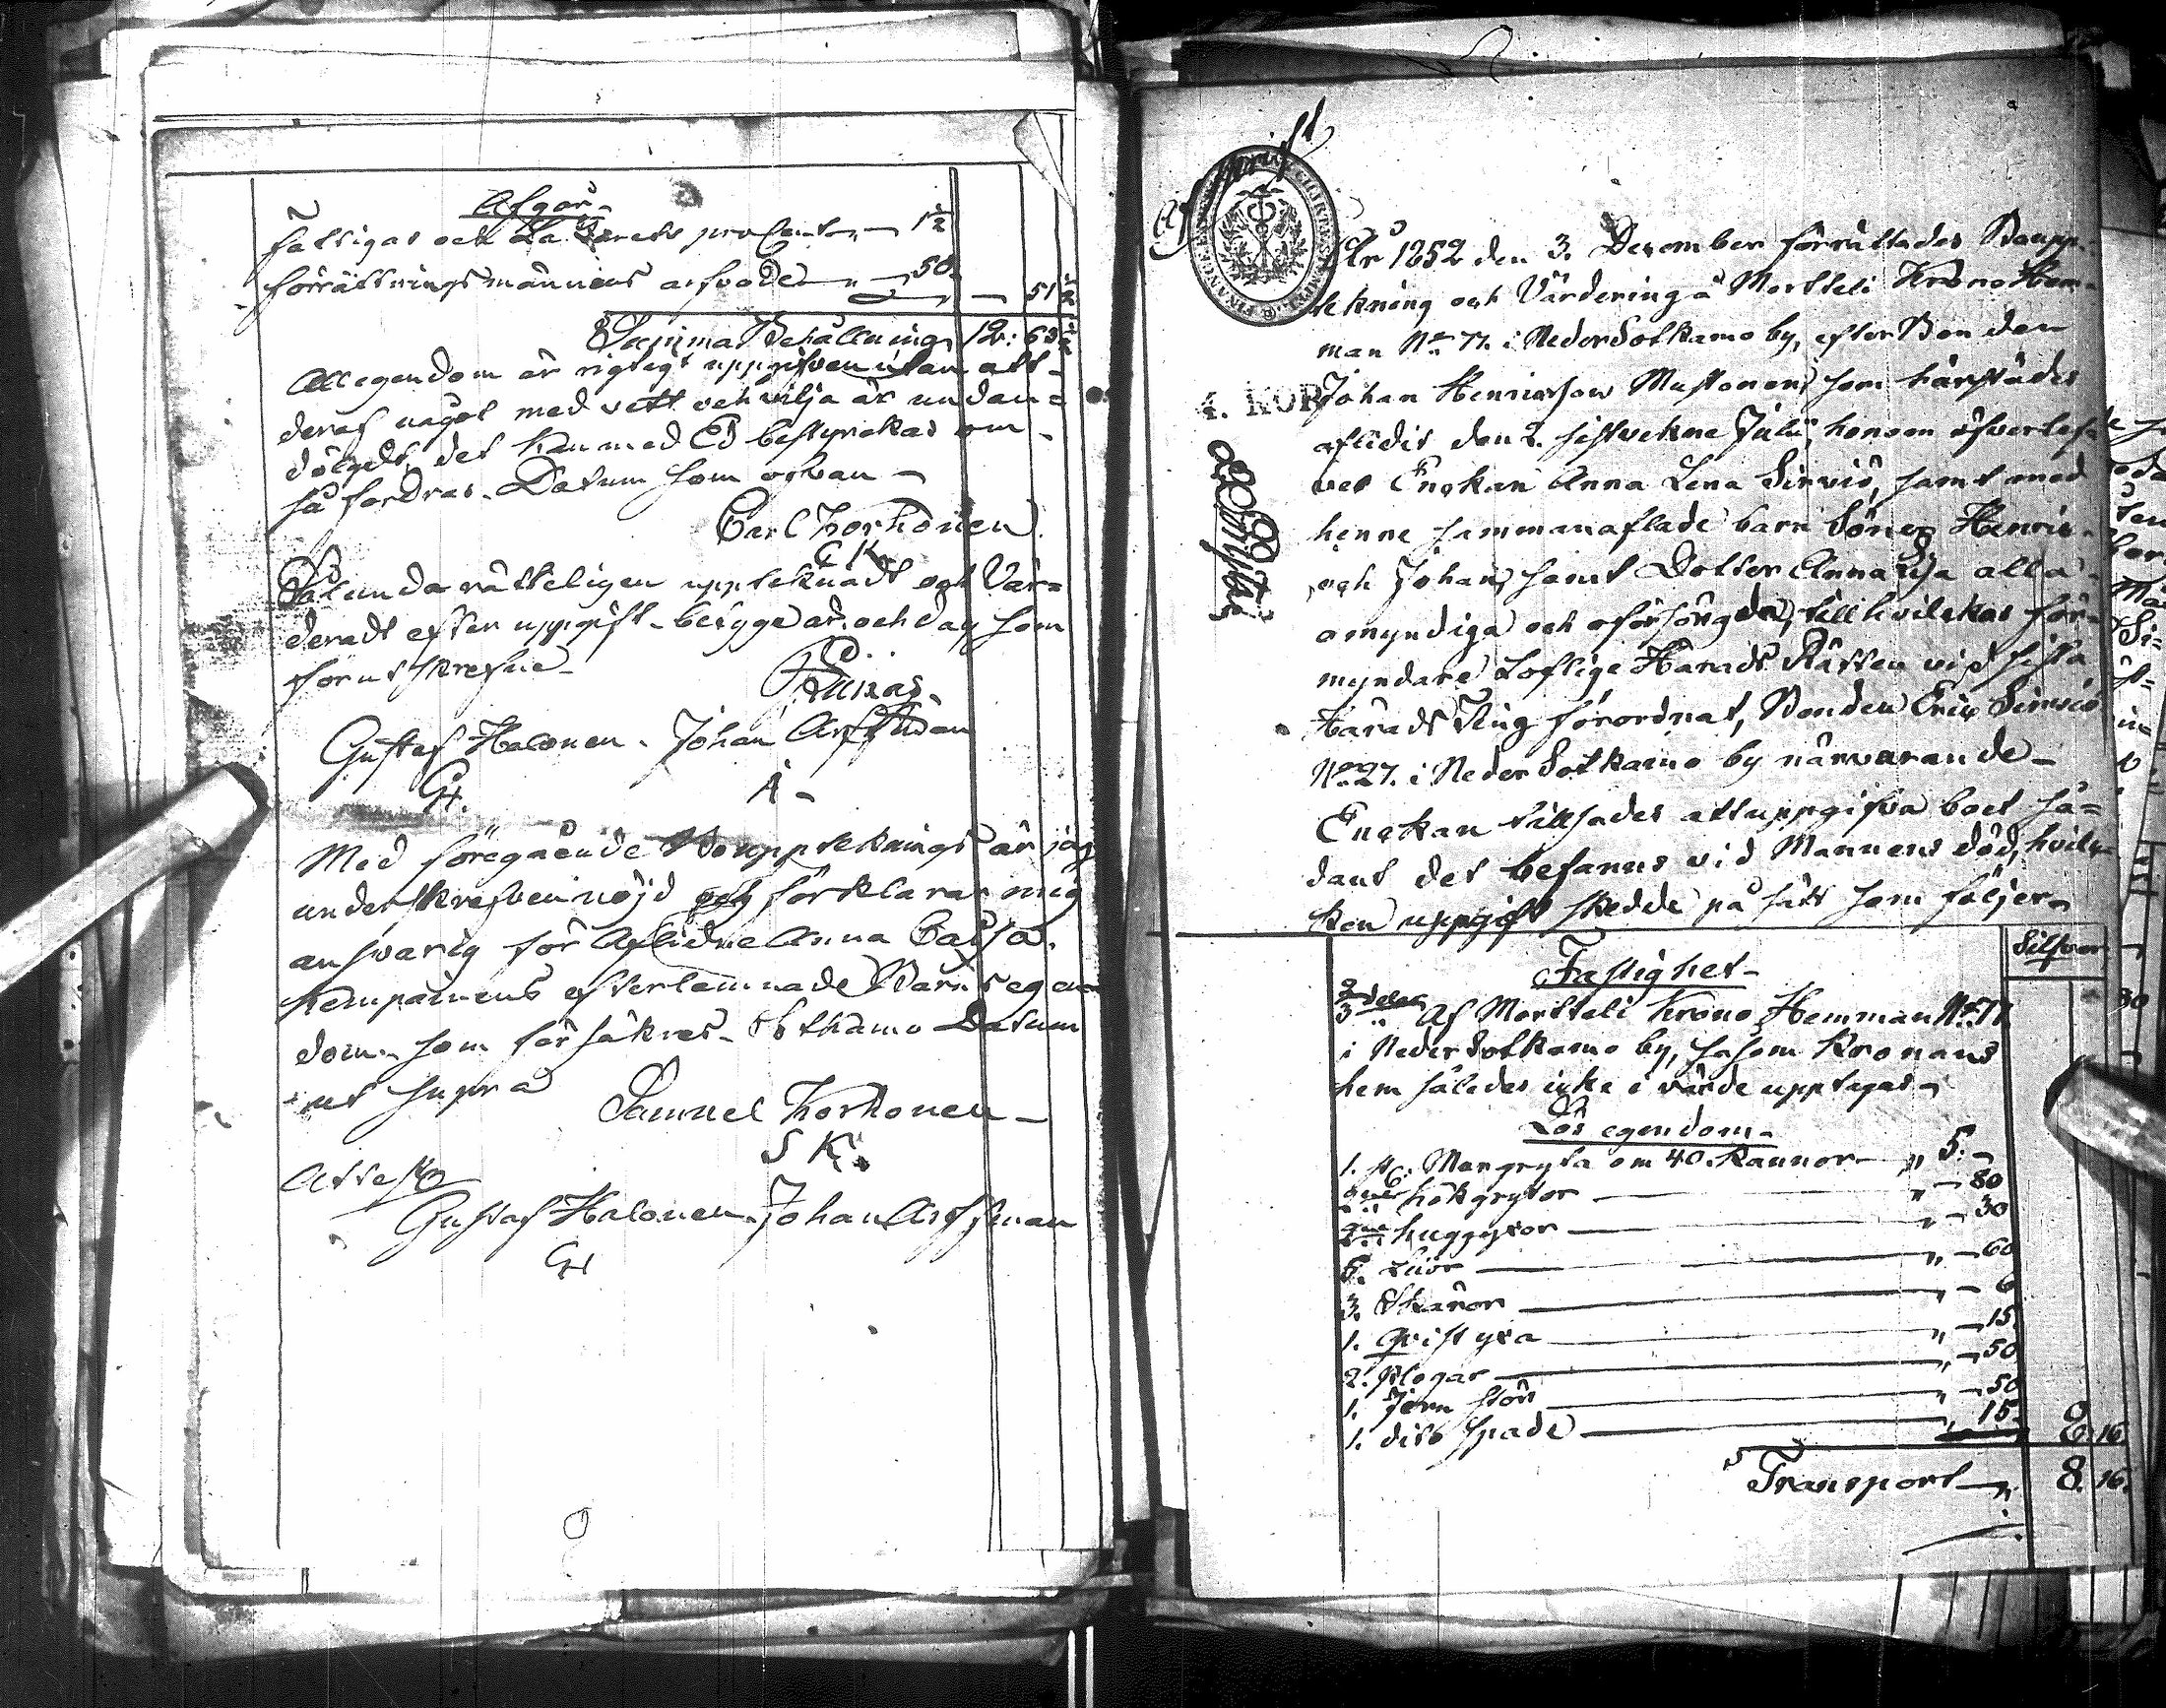 Afgår
Fattigas och La Zarets procent " — 1½
förrättningsmännens arfvode " — 50. — 51½
Summa Behållning 12: 63½
All egendom är rigtigt uppgifven utan att
deraf något med vett och vilja är undan=
dölgdt det kan med Ed bestyrckas om
så fordras. Datum som ofvan —
Carl Korhonen
C K
Sålunda rätteligen upptecknadt och Vär=
deradt efter uppgift betyge år och dag som
förut skrefne
Gustaf Halonen. Johan Arffman
GH. A
Med föregående Bouppteknings är jag
underskrefven nöjd och förklarar mig
ansvarig för Aflidne Anna Caisa
Kempainens efterlemnade Barns egen
dom som försäkras. Sotkamo Datum
ut supra
Samuel Korhonen
S K.
Attesto
Gustaf Halonen. Johan Arffman
GH
Afskrift
År 1852 den 3. December förrättades Boupp-
tekning och Värdering å Mortteli Krono Hem-
man No. 77. i Neder Sotkamo by, efter Bonden
4. KOP
Johan Henricsson Mustonen, som härstädes
aflidit den 2. sistvekne Julii, honom öfverlef-
ver Enckan Anna Lena Sirviö, samt med
henne sammanaflade barn Söner Henric
och Johan, samt Dotter Anna Cajsa alla
omyndiga och oförsörgda, till hvilckas för-
myndare Loflige Härads Rätten vid sista
Härads Ting förordnat, Bonden Eric Sirviö
No. 27. i Neder Sotkamo by närvarande —
Enckan tillsades att uppgifva boet så=
dant det befanns vid Mannens död, hvil-
ken uppgift skedde på sätt som följer
Silfver
Fastighet
2/3 delar Af Mortteli Krono Hemman No. 77
i Neder Sotkamo by, såsom Kronans
hem således icke i värde upptagas
Lös egendom
1. st. Murgryta om 40. Kannor — " 5. —
kokgrytor — " — 80
huggyxor — " — 30
5. Liior — " — 60
3. Skäror — " — 6
1. Qvistyxa — " — 15
2. Plogar — " — 50
1. Jern Stör — " — 50
1. dito spade — " 15 8. 16.
Transport — " 8. 16.